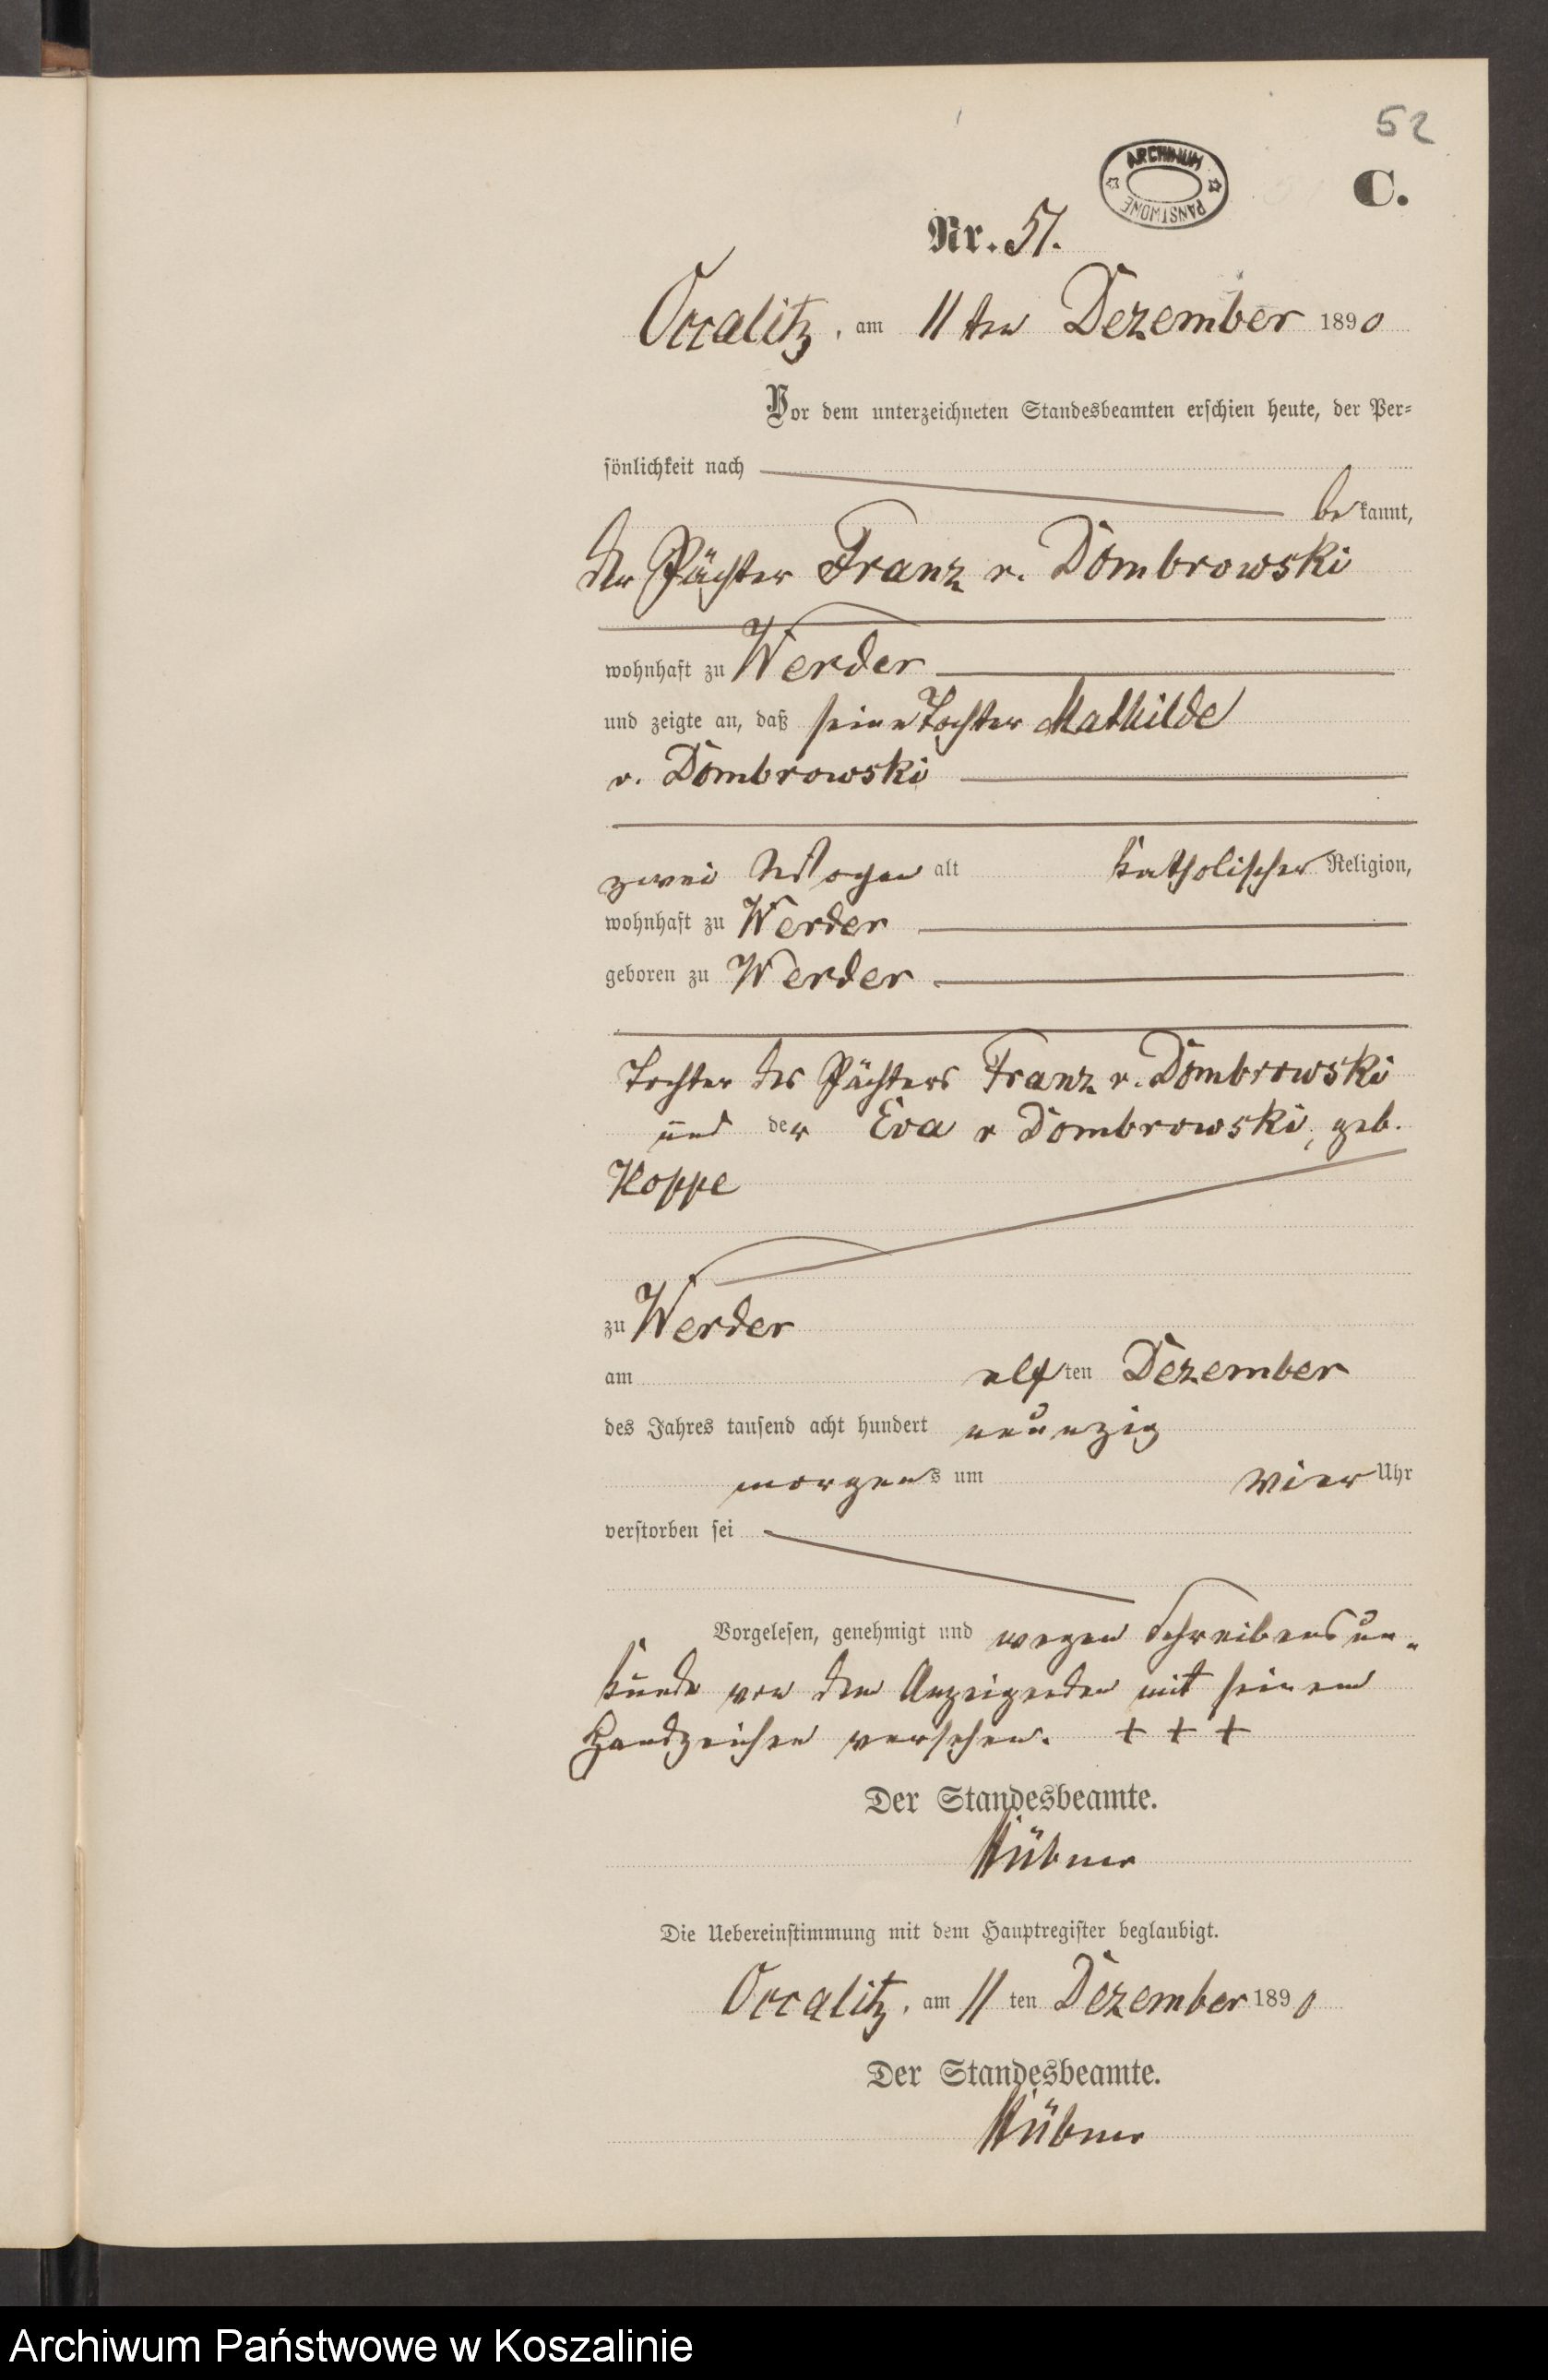 52
ARCHIWUM
PAŃSTWOWE
C.
Nr. 51.
Occalitz, am 11ten Dezember 1890
Vor dem unterzeichneten Standesbeamten erschien heute, der Per=
sönlichkeit nach
bekannt,
der Pächter Franz v. Dombrowski
wohnhaft zu Werder
und zeigte an, daß seine Tochter Mathilde
v. Dombrowski
zwei Wochen alt katholischer Religion,
wohnhaft zu Werder
geboren zu Werder
Tochter des Pächters Franz v. Dombrowski
und der Eva v Dombrowski, geb.
Hoppe
zu Werder
am elften Dezember
des Jahres tausend acht hundert neunzig
morgens um vier Uhr
verstorben sei
Vorgelesen, genehmigt und wegen Schreibensun=
kunde von dem Anzeigenden mit seinem
Handzeichen versehen. + + +
Der Standesbeamte.
Hübner
Die Uebereinstimmung mit dem Hauptregister beglaubigt.
Occalitz, am 11ten Dezember 1890
Der Standesbeamte.
Hübner
Archiwum Państwowe w Koszalinie